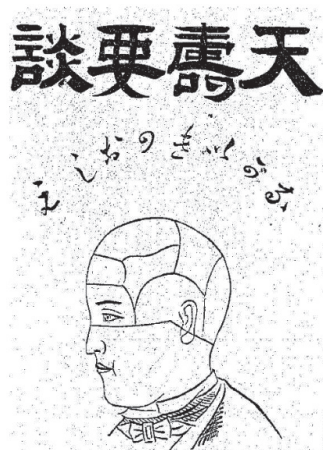 天壽要談
ながいきのおしえ